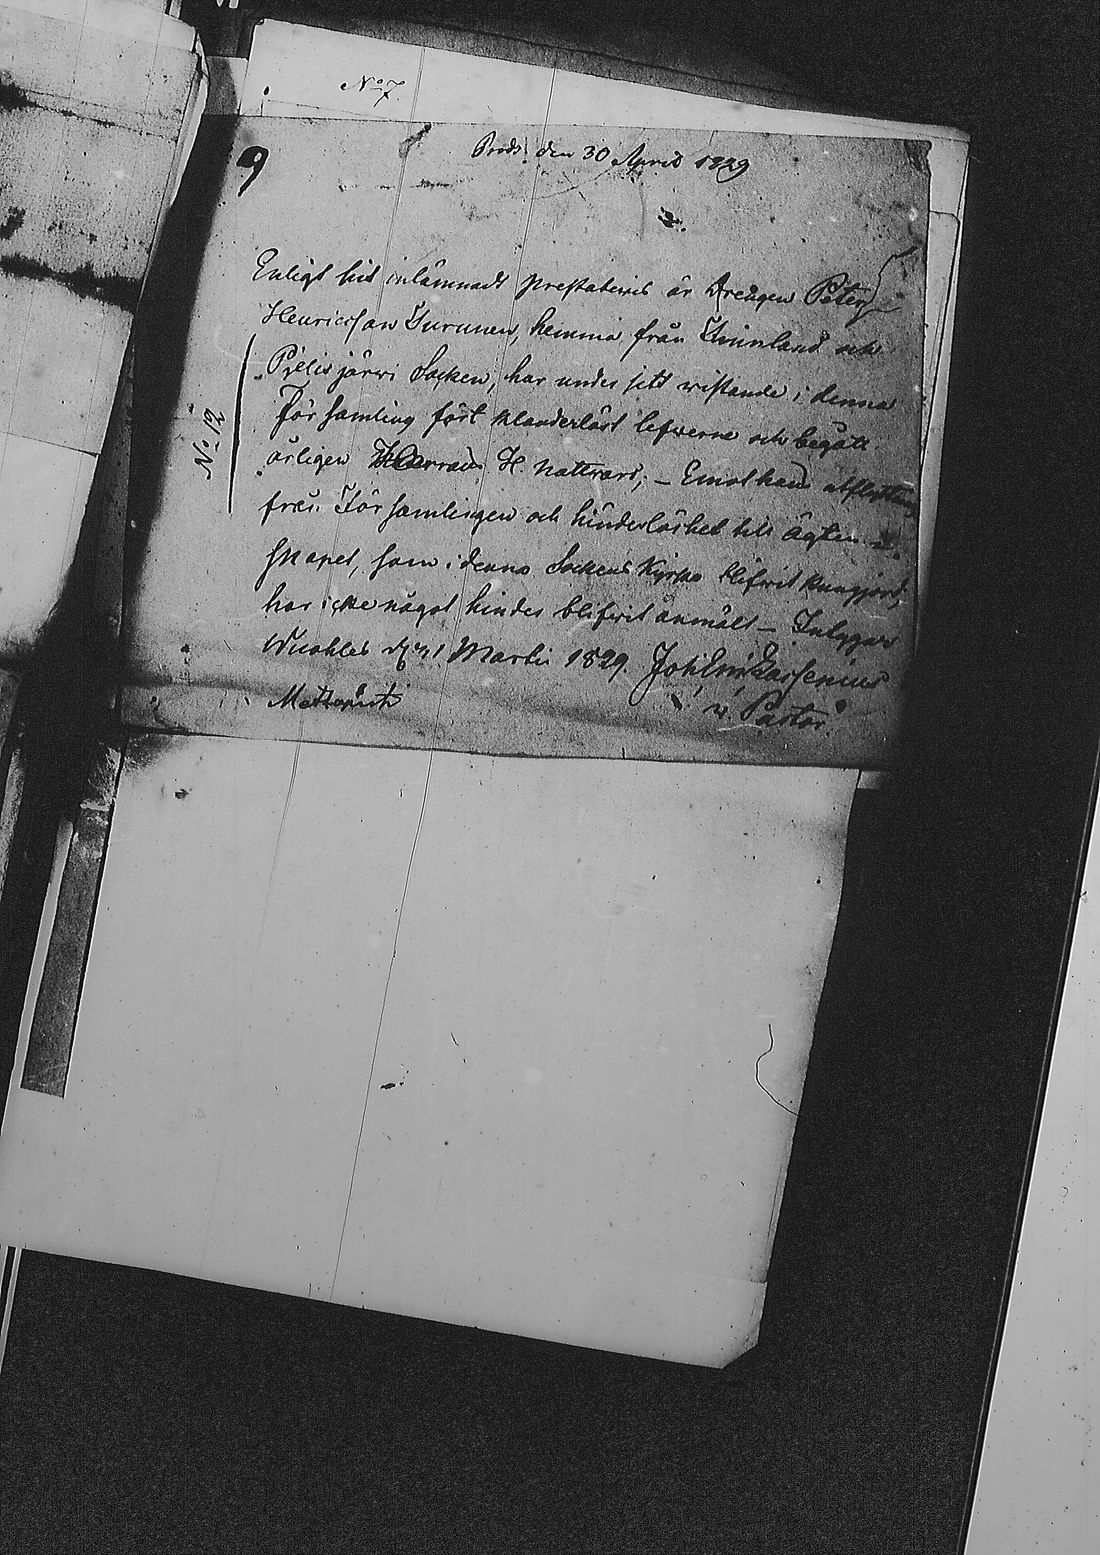 No 7.
9
Prod: den 30 April 1829
Enligt hit inlämnadt prestabevis är Drengen Peter
Henricsson Turunen, hemma från Finnland och
Pielisjärvi Socken, har under sitt wistande i denna
Församling fört klanderlöst lefwerne och begått
årligen Herrans H. Nattvard; – Emot hans afflyttning
från Församlingen och hinderlöshet till Ägten-
skapet, som i denna Sockens Kyrka blifvit kungjord,
har icke något hinder blifvit anmält – Intygar
d. 1 Martii 1829. Joh
v. Pastor.
No 12